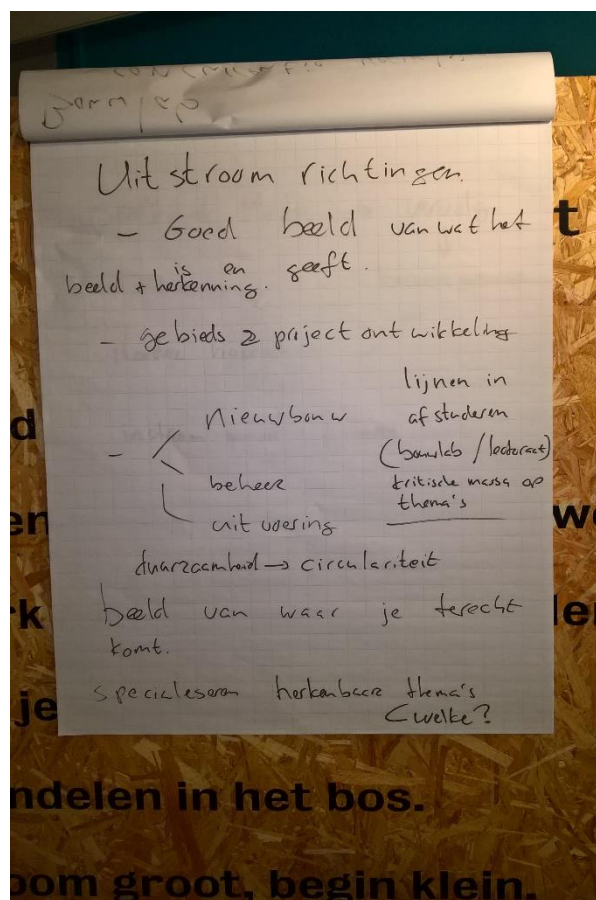 Bouwlab
Uitstroom richtingen.
- Goed beeld van wat het
is en geeft.
beeld + herkenning.
- gebieds 2 project ontwikkeling
- nieuwbouw
beheer
uitvoering
lijnen in
afstuderen
(bouwlab / lectoraat)
kritische massa op
thema's
duurzaamheid → circulariteit
beeld van waar je terecht
komt.
specialeseren herkenbaar thema's
welke?
t
d
en
we
rk
den
je
ndelen in het bos.
oom groot, begin klein.